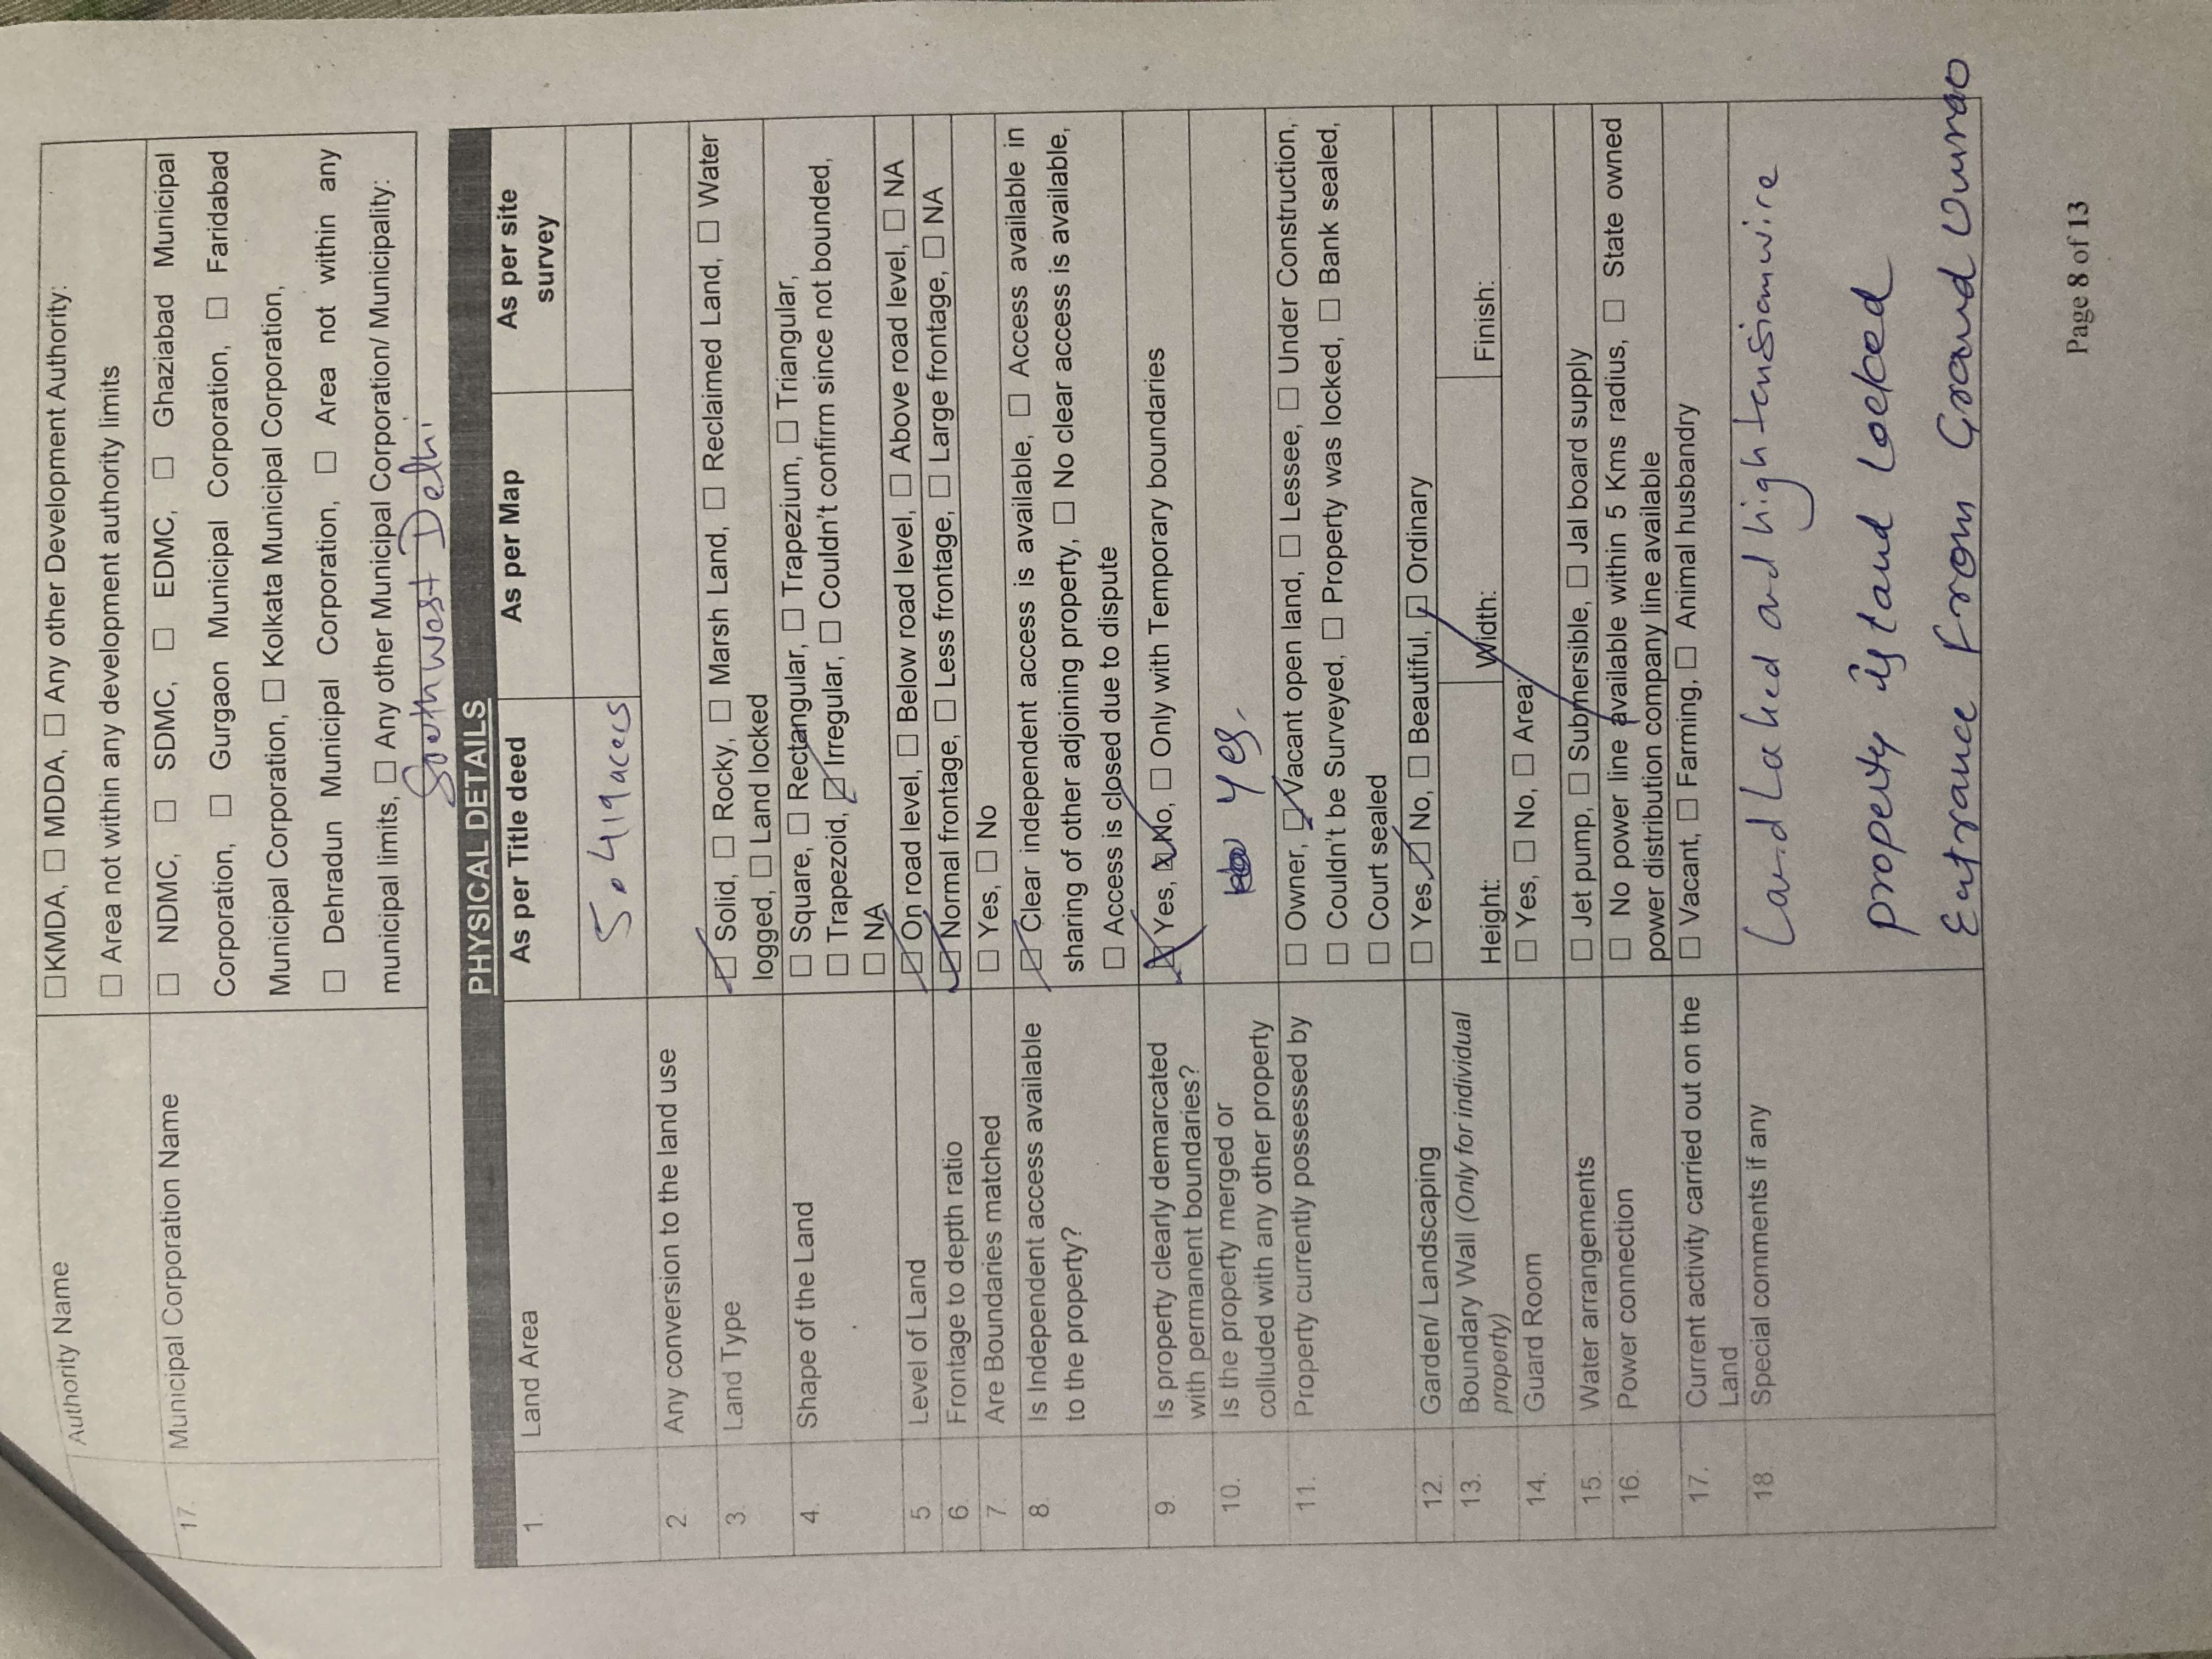 Authority Name
☐KMDA, ☐ MDDA, ☐ Any other Development Authority:
☐ Area not within any development authority limits
17. Municipal Corporation Name
☐ NDMC, ☐ SDMC, ☐ EDMC, ☐ Ghaziabad Municipal
Corporation, ☐ Gurgaon Municipal Corporation, ☐ Faridabad
Municipal Corporation, ☐ Kolkata Municipal Corporation,
☐ Dehradun Municipal Corporation, ☐ Area not within any
municipal limits, ☐ Any other Municipal Corporation/ Municipality:
Southwest Delhi
PHYSICAL DETAILS
1. Land Area
As per Title deed As per Map As per site
survey
5.419 acers
2. Any conversion to the land use
3. Land Type
☑ Solid, ☐ Rocky, ☐ Marsh Land, ☐ Reclaimed Land, ☐ Water
logged, ☐ Land locked
4. Shape of the Land
☐ Square, ☐ Rectangular, ☐ Trapezium, ☐ Triangular,
☐ Trapezoid, ☑ Irregular, ☐ Couldn't confirm since not bounded,
☐ NA
5 Level of Land ☑ On road level, ☐ Below road level, ☐ Above road level, ☐ NA
6. Frontage to depth ratio ☑ Normal frontage, ☐ Less frontage, ☐ Large frontage, ☐ NA
7. Are Boundaries matched ☐ Yes, ☐ No
8. Is Independent access available
to the property?
☑ Clear independent access is available, ☐ Access available in
sharing of other adjoining property, ☐ No clear access is available,
☐ Access is closed due to dispute
9. Is property clearly demarcated
with permanent boundaries?
☒ Yes, ☒ No, ☐ Only with Temporary boundaries
10. Is the property merged or
colluded with any other property
Yes.
11. Property currently possessed by
☐ Owner, ☑ Vacant open land, ☐ Lessee, ☐ Under Construction,
☐ Couldn't be Surveyed, ☐ Property was locked, ☐ Bank sealed,
☐ Court sealed
12. Garden/ Landscaping ☐ Yes, ☑ No, ☐ Beautiful, ☐ Ordinary
13. Boundary Wall (Only for individual
property)
Height: Width: Finish:
14. Guard Room ☐ Yes, ☐ No, ☐ Area:
15. Water arrangements ☐ Jet pump, ☐ Submersible, ☐ Jal board supply
16. Power connection ☐ No power line available within 5 Kms radius, ☐ State owned
power distribution company line available
17. Current activity carried out on the
Land
☐ Vacant, ☐ Farming, ☐ Animal husbandry
18. Special comments if any
Land Laked and high tension wire
property is land locked
Entrance from Grand
Page 8 of 13